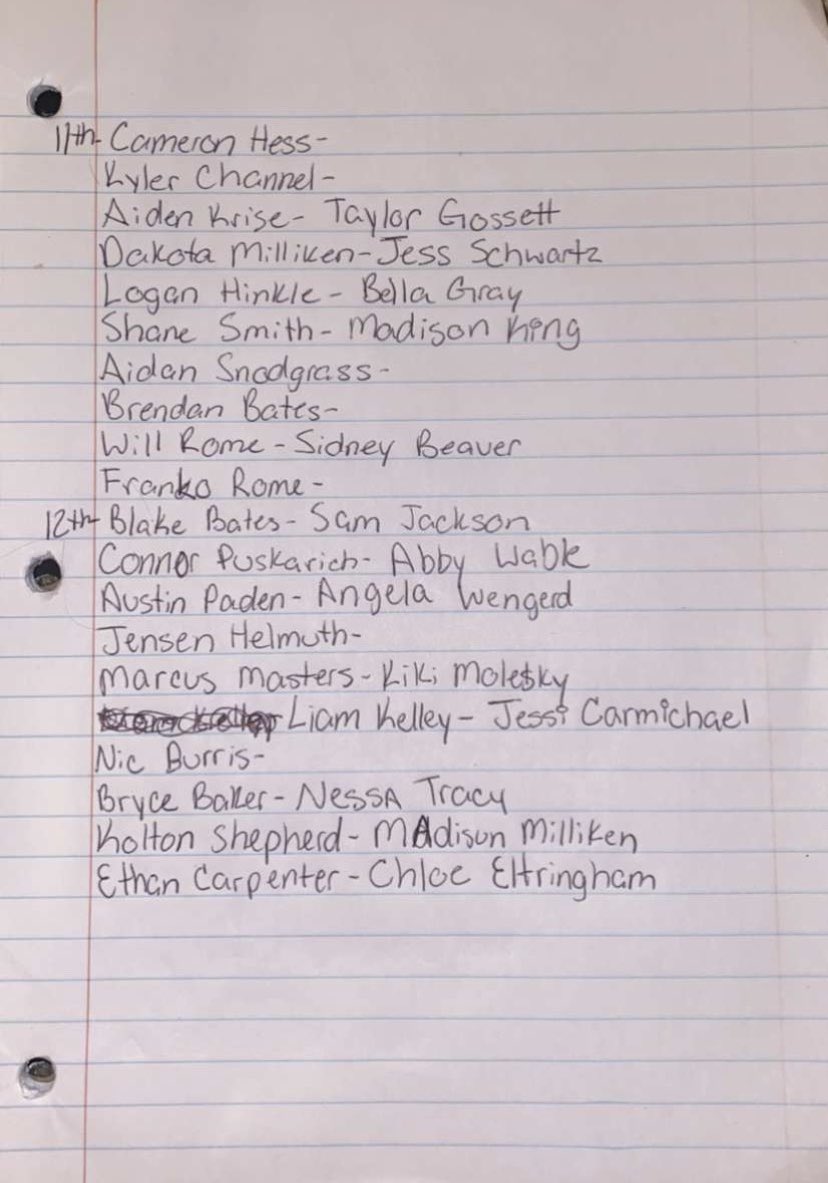 11th- Cameron Hess-
Kyler Channel-
Aiden Krise- Taylor Gossett
Dakota Milliken- Jess Schwartz
Logan Hinkle- Bella Gray
Shane Smith- Madison King
Aidan Snodgrass-
Brendan Bates-
Will Rome- Sidney Beaver
Franko Rome-
12th- Blake Bates- Sam Jackson
Connor Puskarich- Abby Wable
Austin Paden- Angela Wengerd
Jensen Helmuth-
Marcus Masters- Kiki Molesky
Liam Kelley- Jessi Carmichael
Nic Burris-
Bryce Baker- NessA Tracy
Kolton Shepherd- MAdison Milliken
Ethan Carpenter- Chloe Eltringham